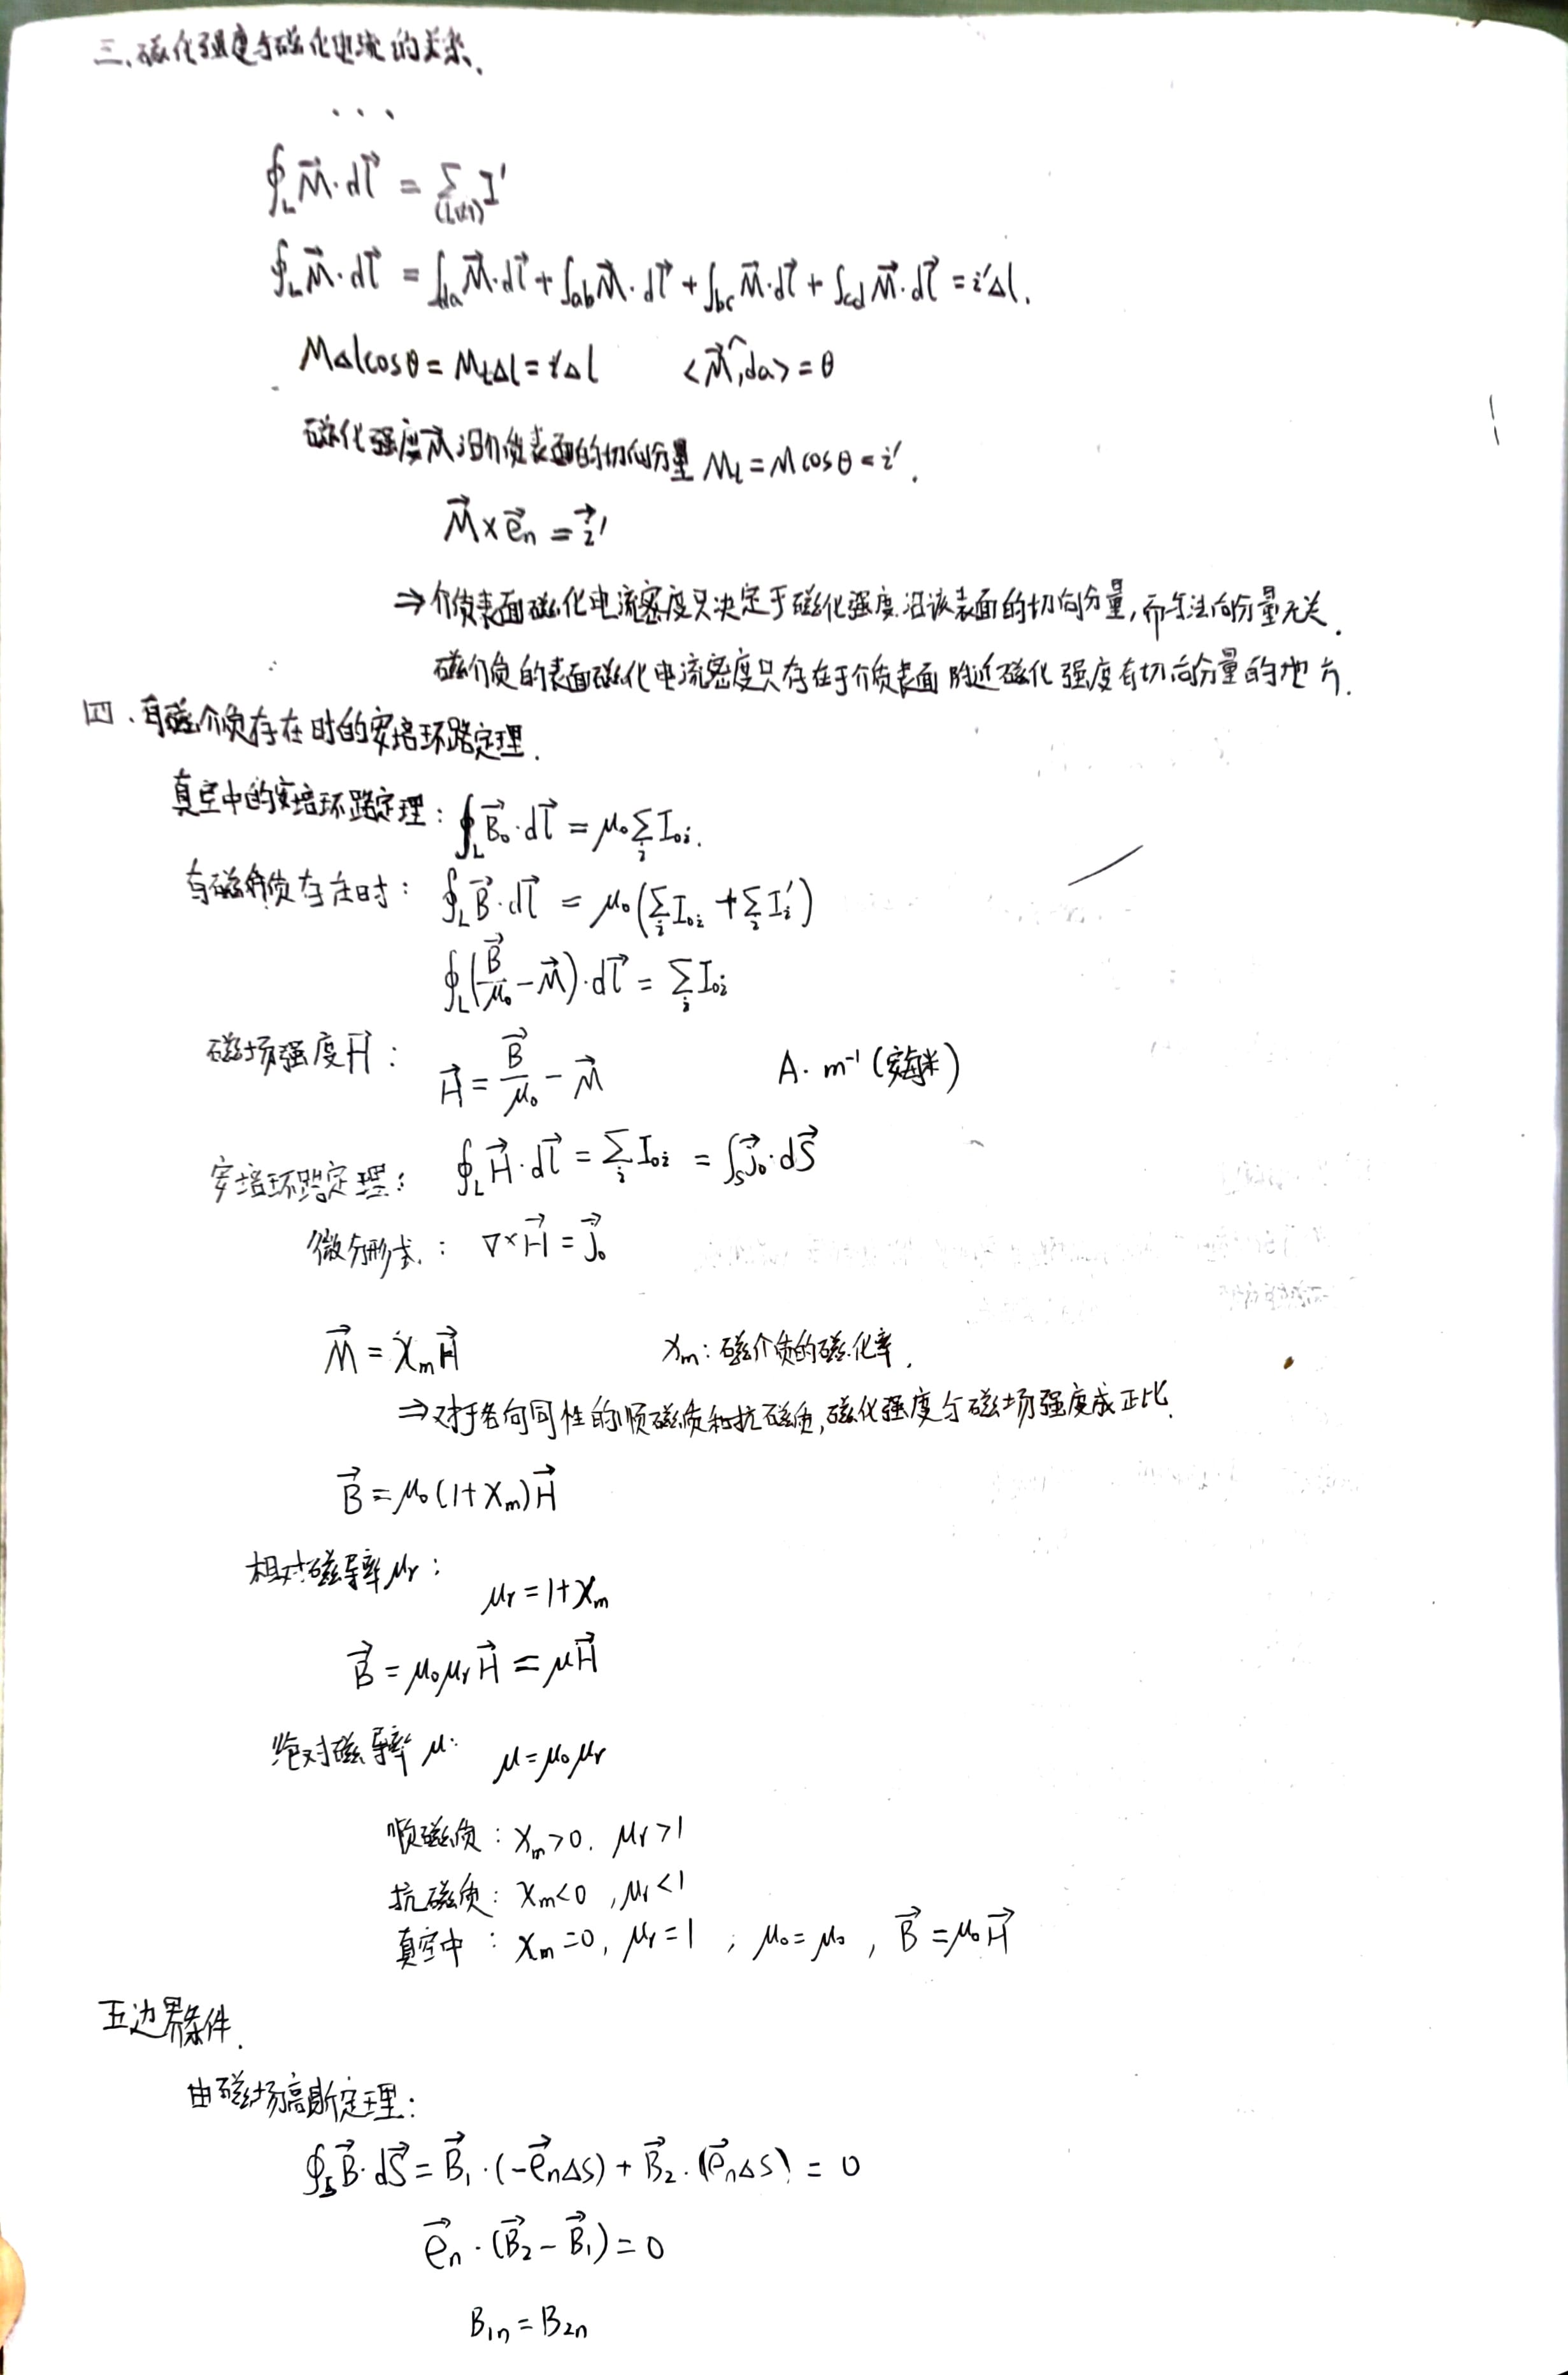 三、磁化强度与磁化电流的关系.
...
∮_L M⃗·dl⃗ = Σ_(L内) I'
∮_L M⃗·dl⃗ = ∫_da M⃗·dl⃗ + ∫_ab M⃗·dl⃗ + ∫_bc M⃗·dl⃗ + ∫_cd M⃗·dl⃗ = i'Δl.
MΔlcosθ = M_tΔl = i'Δl <M⃗,da> = θ
磁化强度M⃗沿介质表面的切向分量 M_t = M cosθ = i'.
M⃗ × e⃗_n = i⃗'
⇒ 介质表面磁化电流密度只决定于磁化强度沿该表面的切向分量,而与法向分量无关.
磁介质的表面磁化电流密度只存在于介质表面附近磁化强度有切向分量的地方.
四、有磁介质存在时的安培环路定理.
真空中的安培环路定理: ∮_L B⃗_0·dl⃗ = μ_0 Σ_i I_0i.
有磁介质存在时: ∮_L B⃗·dl⃗ = μ_0(Σ_i I_0i + Σ_i I_i')
∮_L(B⃗/μ_0 - M⃗)·dl⃗ = Σ_i I_0i
磁场强度H⃗: H⃗ = B⃗/μ_0 - M⃗ A·m⁻¹(安每米)
安培环路定理: ∮_L H⃗·dl⃗ = Σ_i I_0i = ∫_S j⃗_0·dS⃗
微分形式.: ∇×H⃗ = j⃗_0
M⃗ = χ_m H⃗ χ_m: 磁介质的磁化率.
⇒ 对于各向同性的顺磁质和抗磁质,磁化强度与磁场强度成正比.
B⃗ = μ_0(1+χ_m)H⃗
相对磁导率μ_r:
μ_r = 1+χ_m
B⃗ = μ_0μ_r H⃗ = μH⃗
绝对磁导率μ: μ = μ_0μ_r
顺磁质: χ_m>0. μ_r>1
抗磁质: χ_m<0, μ_r<1
真空中: χ_m=0, μ_r=1 ; μ_0=μ_0, B⃗=μ_0H⃗
五边界条件.
由磁场高斯定理:
∮_S B⃗·dS⃗ = B⃗_1·(-e⃗_nΔS) + B⃗_2·(e⃗_nΔS) = 0
e⃗_n·(B⃗_2 - B⃗_1) = 0
B_1n = B_2n